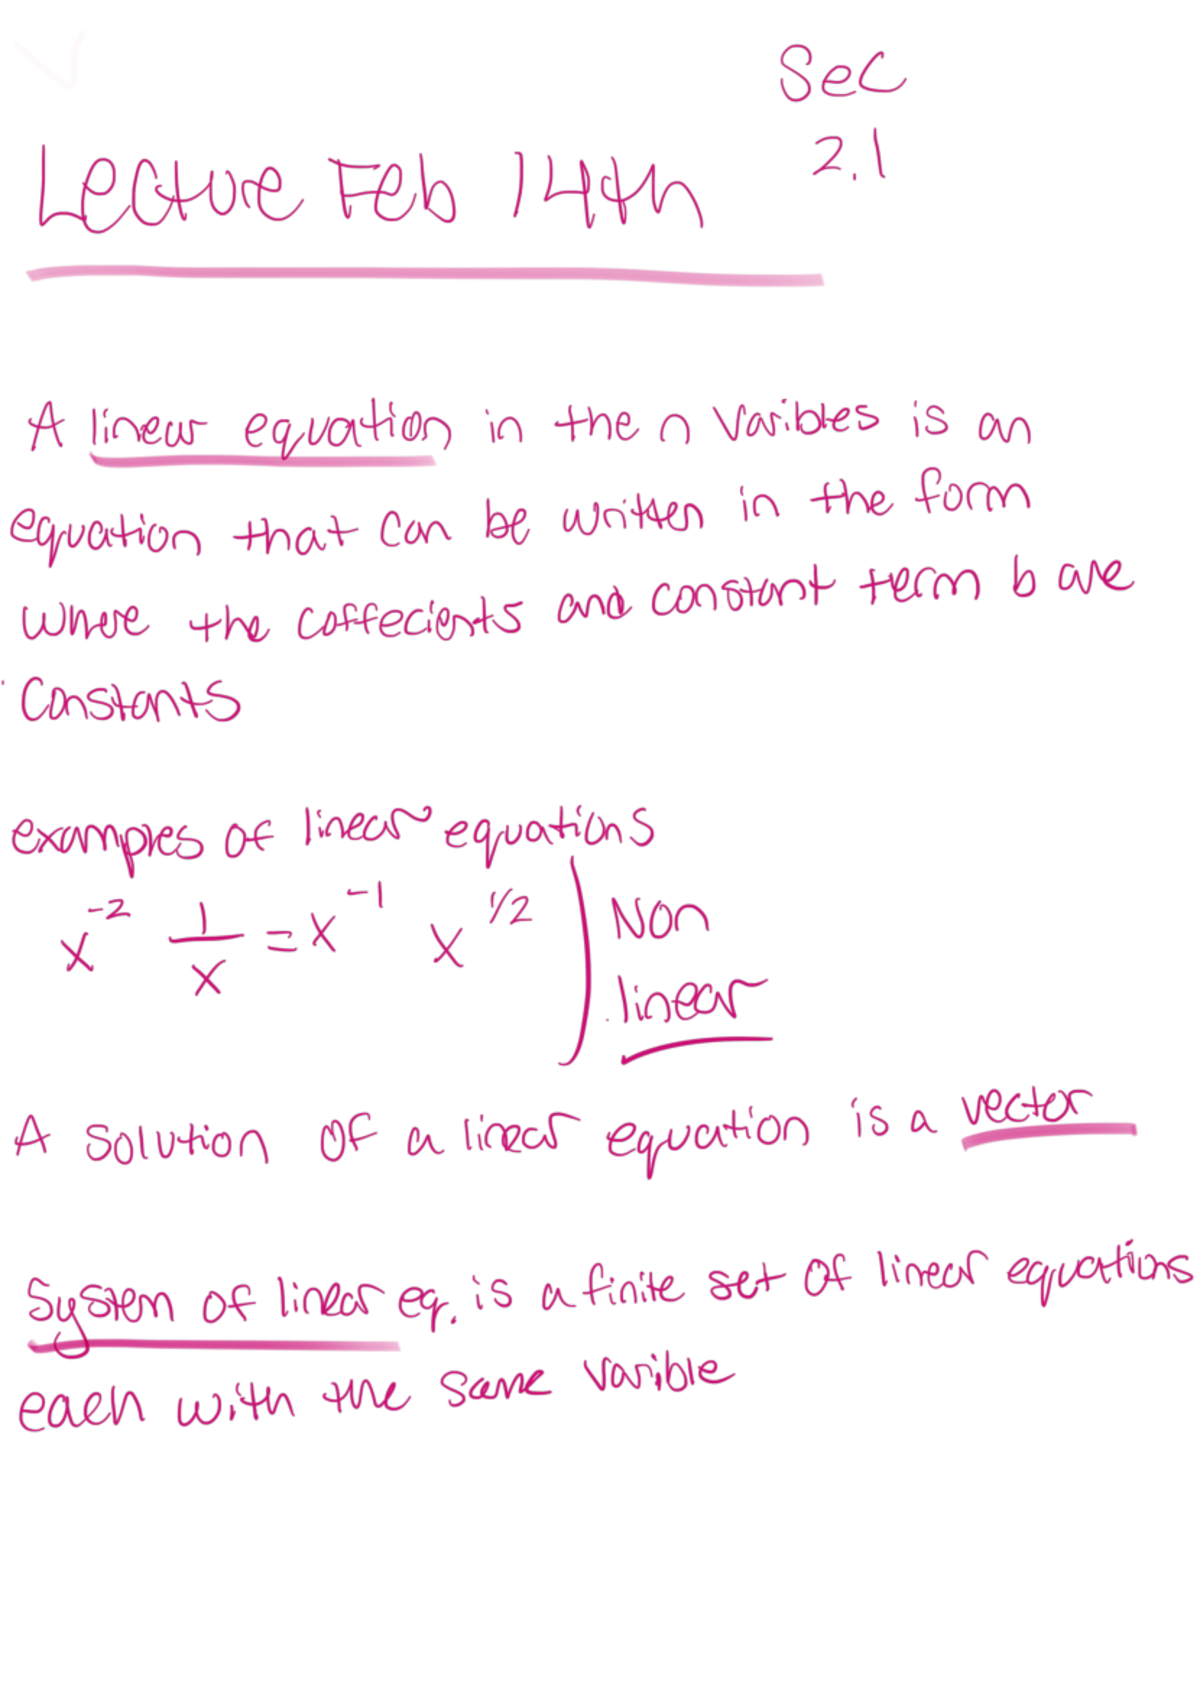 Sec
2.1
Lecture Feb 14th
A linear equation in the n varibles is an
equation that can be written in the form
where the coffecients and constant term b are
constants
examples of linear equations
x^-2 1/x = x^-1 x^1/2 ) Non
linear
A solution of a linear equation is a vector
System of linear eq. is a finite set of linear equations
each with the same varible